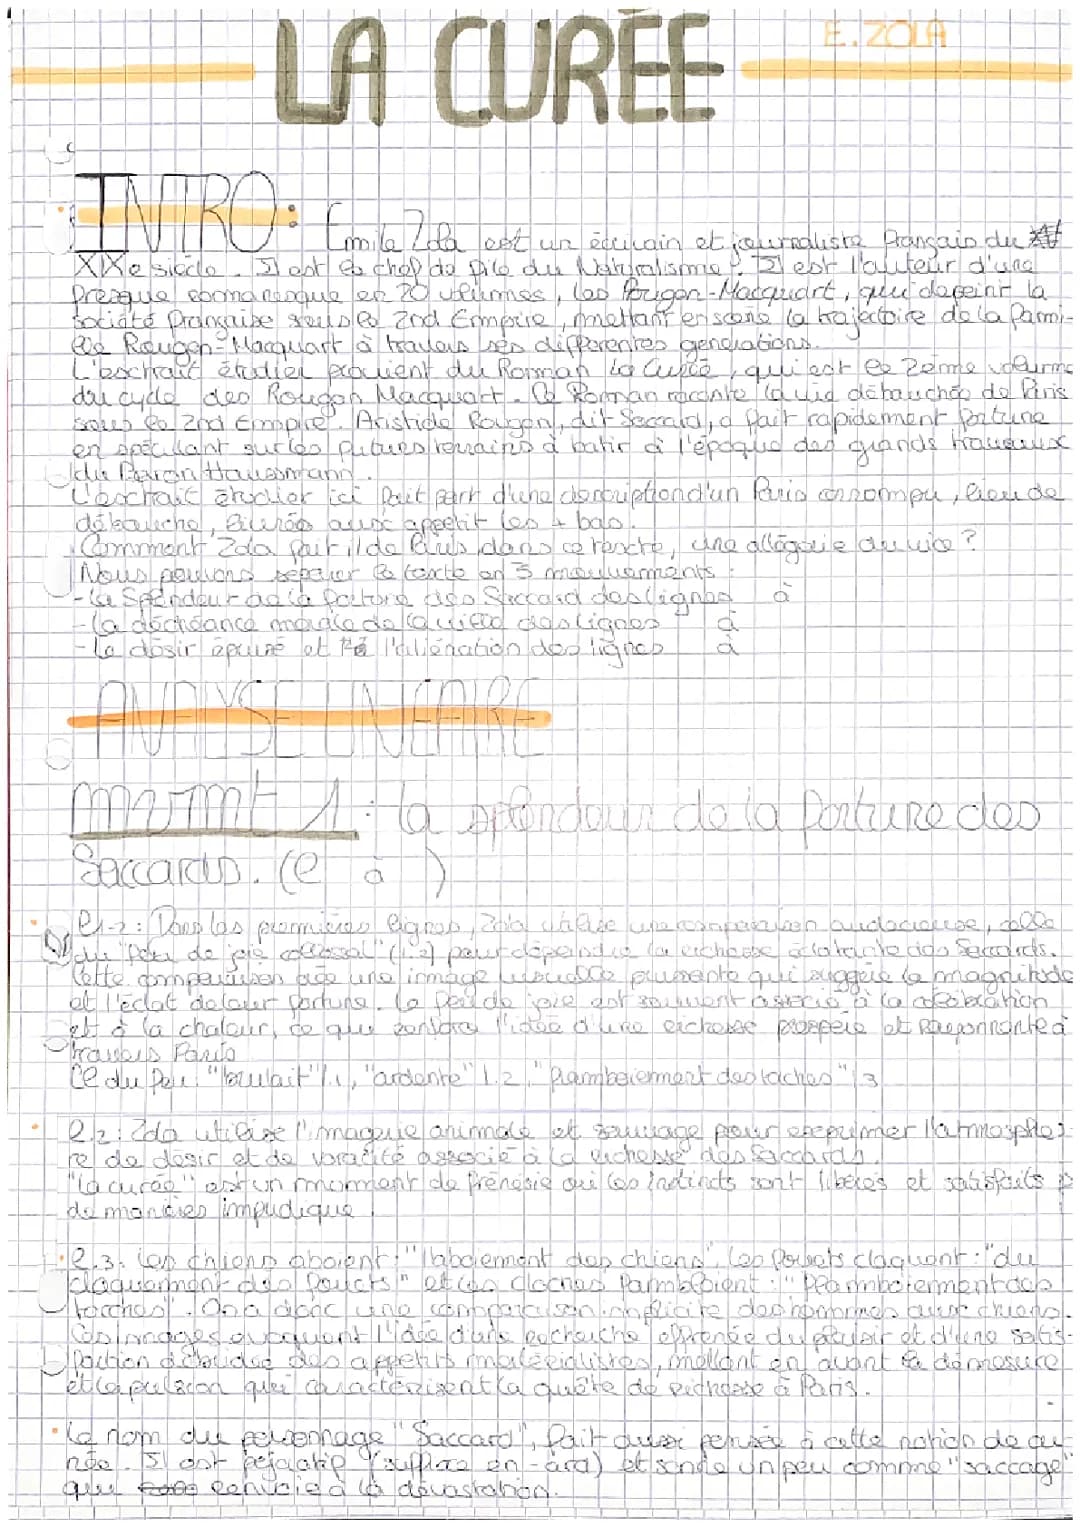 LA CURÉE
E. ZOLA
INTRO: Emile Zola est un écrivain et journaliste français du
XIXe siècle. Il est le chef de file du Naturalisme. Il est l'auteur d'une
fresque romanesque en 20 volumes, les Rougon-Macquart, qui dépeint la
société française sous le 2nd Empire, mettant en scène la trajectoire de la fami-
lle Rougon-Macquart à travers ses différentes générations.
L'esctrait étudier provient du Roman La Curée, qui est le 2ème volume
du cycle des Rougon Macquart. Ce Roman raconte la vie débauchée de Paris
sous le 2nd Empire. Aristide Rougon, dit Saccard, a fait rapidement fortune
en spéculant sur les futurs terrains à batir à l'époque des grands travaux
du Baron Haussmann.
L'esctrait étudier ici fait part d'une description d'un Paris corrompu, lieu de
débauche, livrée aux appetit les + bas.
Comment Zola fait il de Paris dans ce texte, une allégorie du vice ?
Nous pouvons séparer le texte en 3 mouvements :
- La Splendeur de la fortune des Saccard des lignes à
- la déchéance morale de la ville des lignes à
- le désir épuisé et l'aliénation des lignes à
ANALYSE LINEAIRE
mvmt 1 : la splendeur de la fortune des
Saccards. (l à )
l1-2 : Dans les premières lignes, Zola utilise une comparaison audacieuse, celle
du "feu de joie colossal" (l.2) pour dépeindre la richesse éclatante des Saccards.
Cette comparaison crée une image visuelle puissante qui suggère la magnitude
et l'éclat de leur fortune. Le feu de joie est souvent associé à la célébration
et à la chaleur, ce qui renforce l'idée d'une richesse prospère et rayonnante à
travers Paris
CL du feu : "brulait" l.1, "ardente" l.2, "flamboiement des torches" l.3
l.2 : Zola utilise l'imagerie animale et sauvage pour exprimer l'atmosphè-
re de désir et de voracité associé à la richesse des Saccards.
"La curée" est un moment de frénésie où les instincts sont libérés et satisfaits
de manières impudique.
l.3. les chiens aboient : "l'aboiement des chiens", les fouets claquent : "du
claquement des fouets" et les torches flamboient : "flamboiement des
torches". On a donc une comparaison implicite des hommes aux chiens.
Ces images évoquent l'idée d'une recherche effrénée du plaisir et d'une satis-
faction débridée des appétits matérialistes, mettant en avant la démesure
et la pulsion qui caractérisent la quête de richesse à Paris.
Le nom du personnage "Saccard", fait aussi pensée à cette notion de cu-
rée. Il est péjoratif (suffixe en -ard) et sonde un peu comme "saccage"
qui renvoie à la dévastation.